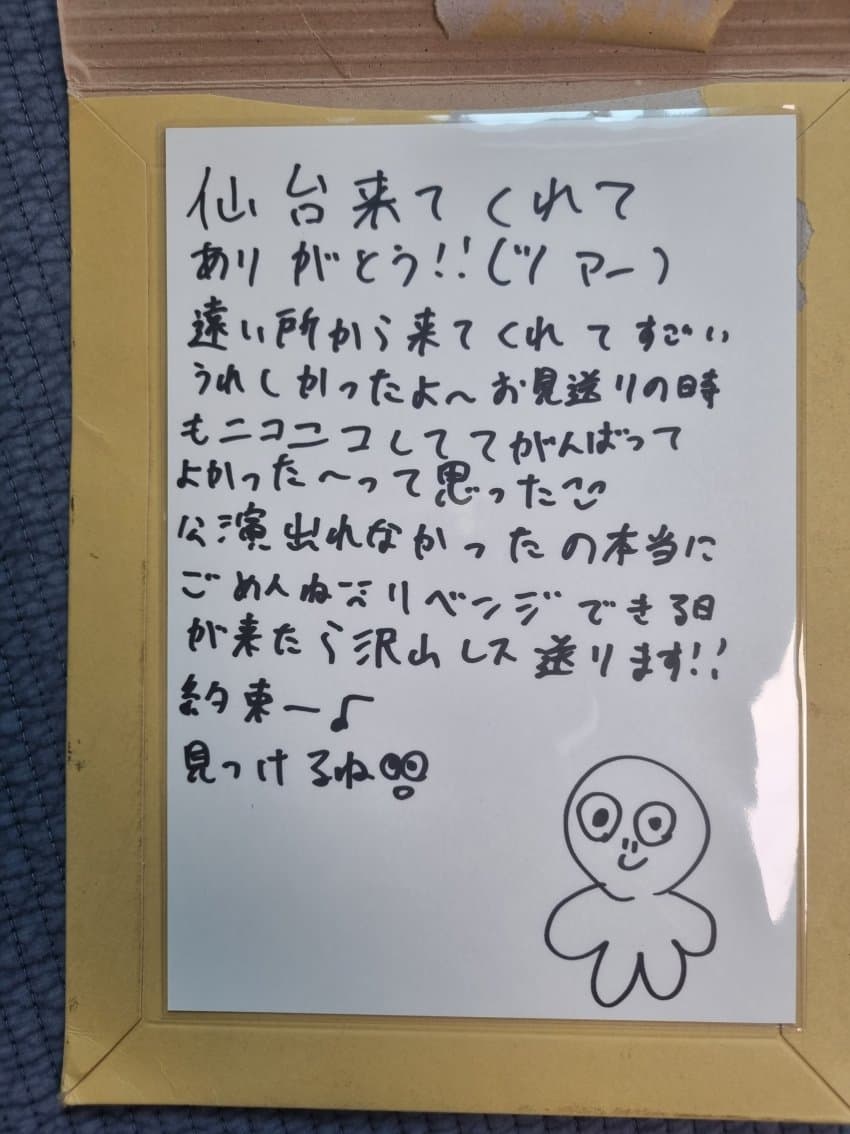 仙台来てくれて
ありがとう!!(ツアー)
遠い所から来てくれてすごい
うれしかったよ〜お見送りの時
もニコニコしててがんばって
よかった〜って思った
公演出れなかったの本当に
ごめんねリベンジできる日
が来たら沢山レス送ります!!
約束ー♪
見つけるね